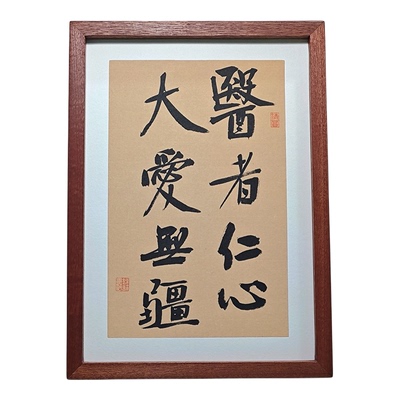 醫者仁心
大愛無疆